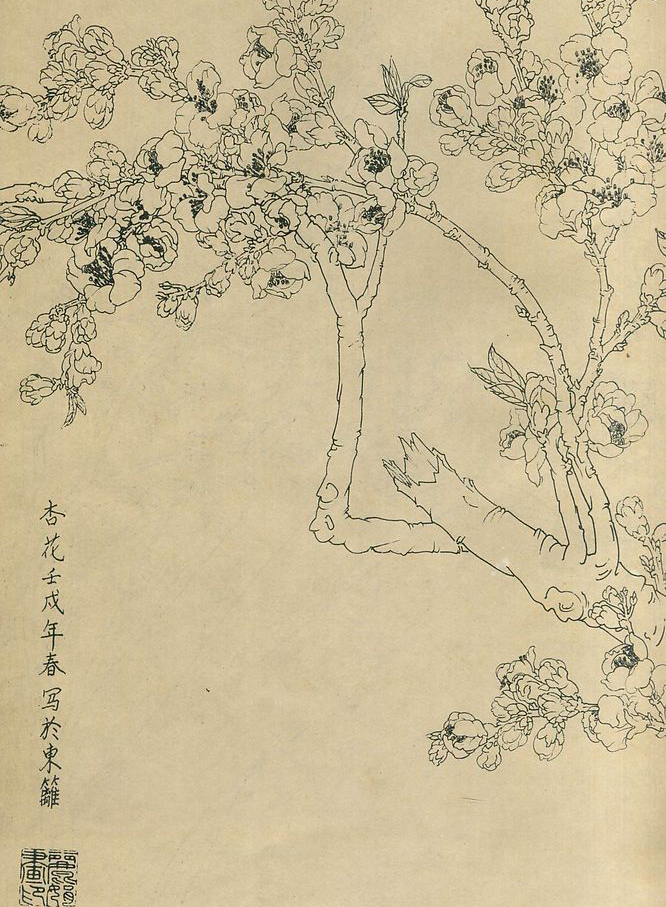 杏花壬戌年春写於東籬